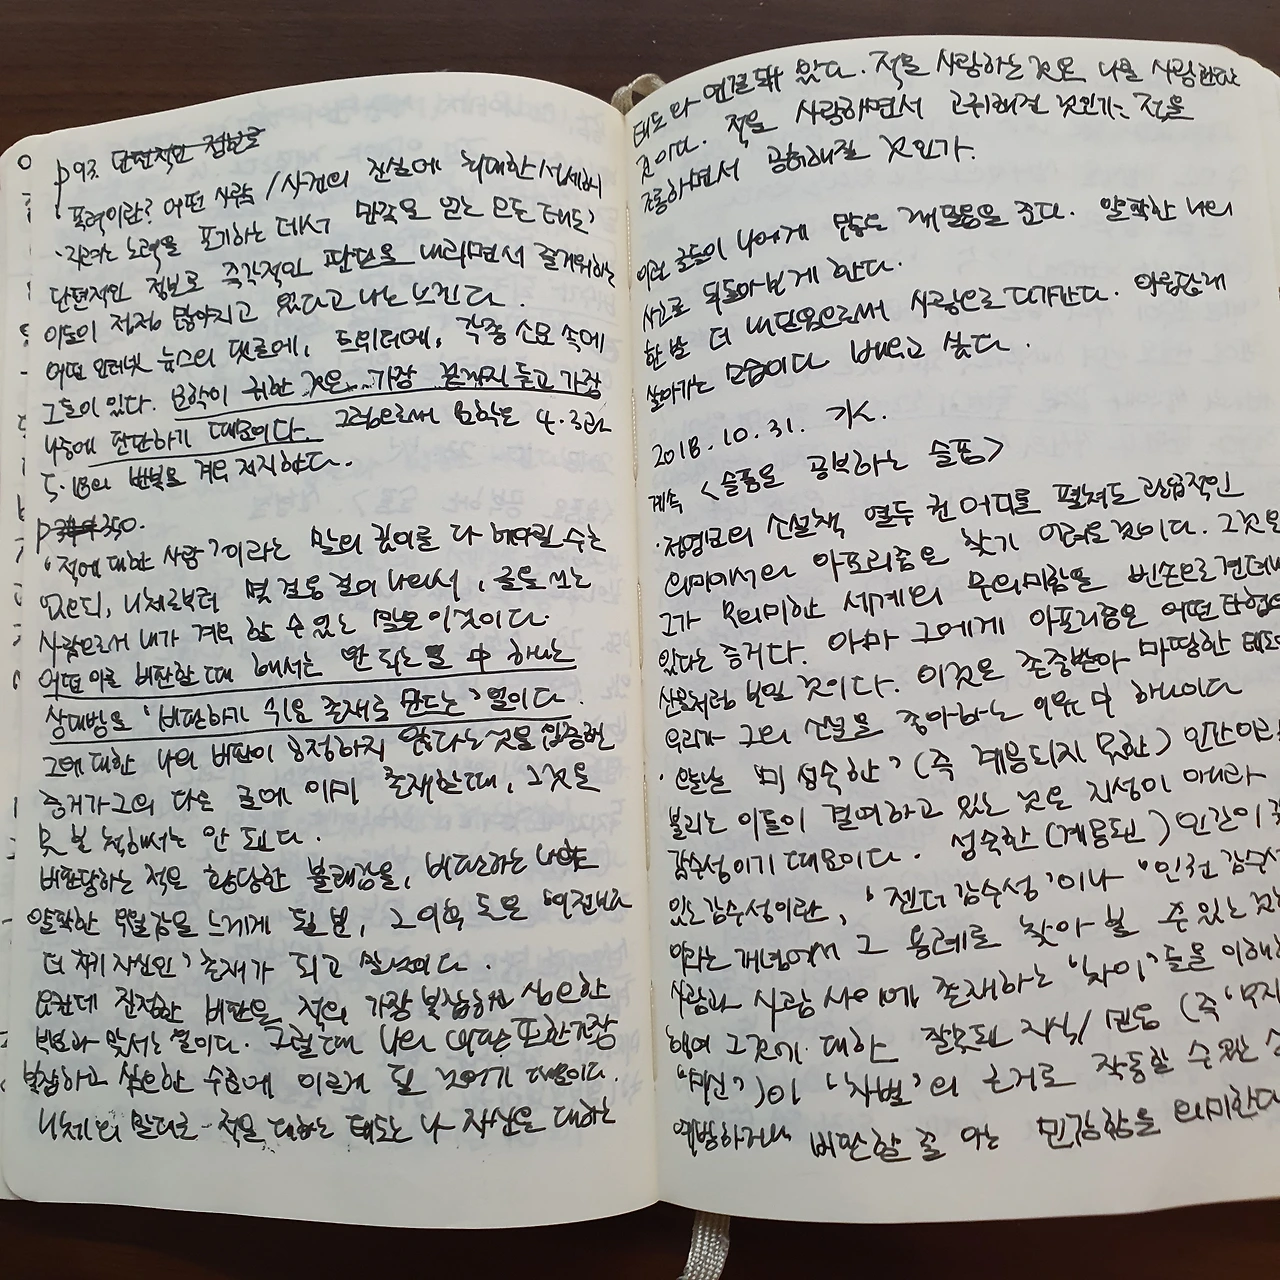 p93 단편적인 정보로
'폭력이란? 어떤 사람/사건의 진실에 최대한 섬세해
지려는 노력을 포기하는 데서 만족을 얻는 모든 태도'
단편적인 정보로 즉각적인 판단을 내리면서 즐거워하는
이들이 점점 많아지고 있다고 나는 느낀다.
어떤 인터넷 뉴스의 댓글에, 트위터에, 각종 소모 속에
그들이 있다. 문학이 귀한 것은 가장 끝까지 듣고 가장
나중에 판단하기 때문이다. 그럼으로써 문학은 4.3과
5.18의 반복을 계속 저지한다.
p350.
'적에 대한 사랑'이라는 말의 깊이를 다 헤아릴 수는
없으되, 니체로부터 몇 걸음 걸어 나와서, 글을 쓰는
사람으로서 내가 겨우 할 수 있는 말은 이것이다.
어떤 이를 비판할 때 해서는 안 되는 일 중 하나는
상대방을 '비판하기 쉬운 존재로 만드는' 일이다.
그에 대한 나의 비판이 공정하지 않다는 것을 입증할
증거가 그의 다른 글에 이미 존재할 때, 그것을
못 본 척해서는 안 된다.
비판당하는 적은 황당한 불쾌감을, 비판하는 나는
얄팍한 우월감을 느끼게 될 뿐, 그 이후 둘은 '이전보다
더 자기 자신인' 존재가 되고 말 것이다.
요컨데 진정한 비판은 적의 가장 복잡하고 심오한
부분과 맞서는 일이다. 그럴 때 나의 비판 또한 가장
복잡하고 심오한 수준에 이르게 될 것이기 때문이다.
니체의 말대로 적을 대하는 태도는 나 자신을 대하는
태도와 연결돼 있다. 적을 사랑하는 것은 나를 사랑한다는
것이다. 적을 사랑하면서 고귀해질 것인가, 적을
조롱하면서 공허해질 것인가.
이런 글들이 나에게 많은 깨달음을 준다. 얄팍한 나의
사고를 되돌아보게 한다.
한 발 더 내딛음으로써 사랑으로 다가간다. 아름답게
살아가는 모습이다. 배우고 싶다.
2018.10.31. 가.
계속 <슬픔을 공부하는 슬픔>
·정영문의 소설책 열두 권 어디를 펼쳐도 관습적인
의미에서의 아포리즘은 찾기 어려울 것이다. 그것은
그가 무의미한 세계의 무의미함을 빈손으로 견뎌내고
있다는 증거다. 아마 그에게 아포리즘은 어떤 타협의
산물처럼 보일 것이다. 이것은 존중받아 마땅한 태도
우리가 그의 소설을 좋아하는 이유 다 하나이다
·오늘날 '미성숙한' (즉 계몽되지 못한) 인간이라
불리는 이들이 결여하고 있는 것은 지성이 아니라
감수성이기 때문이다. 성숙한 (계몽된) 인간이
있는 감수성이란, '젠더 감수성'이나 "인권 감수성
이라는 개념에서 그 용례를 찾아볼 수 있는 것
사람과 사람 사이에 존재하는 '차이'들을 이해
하며 그것에 대한 잘못된 지식/믿음 (즉 '무지
"미신")이 '차별'의 근거로 작동할 수
예방하거나 비판할 줄 아는 민감함을 의미한다